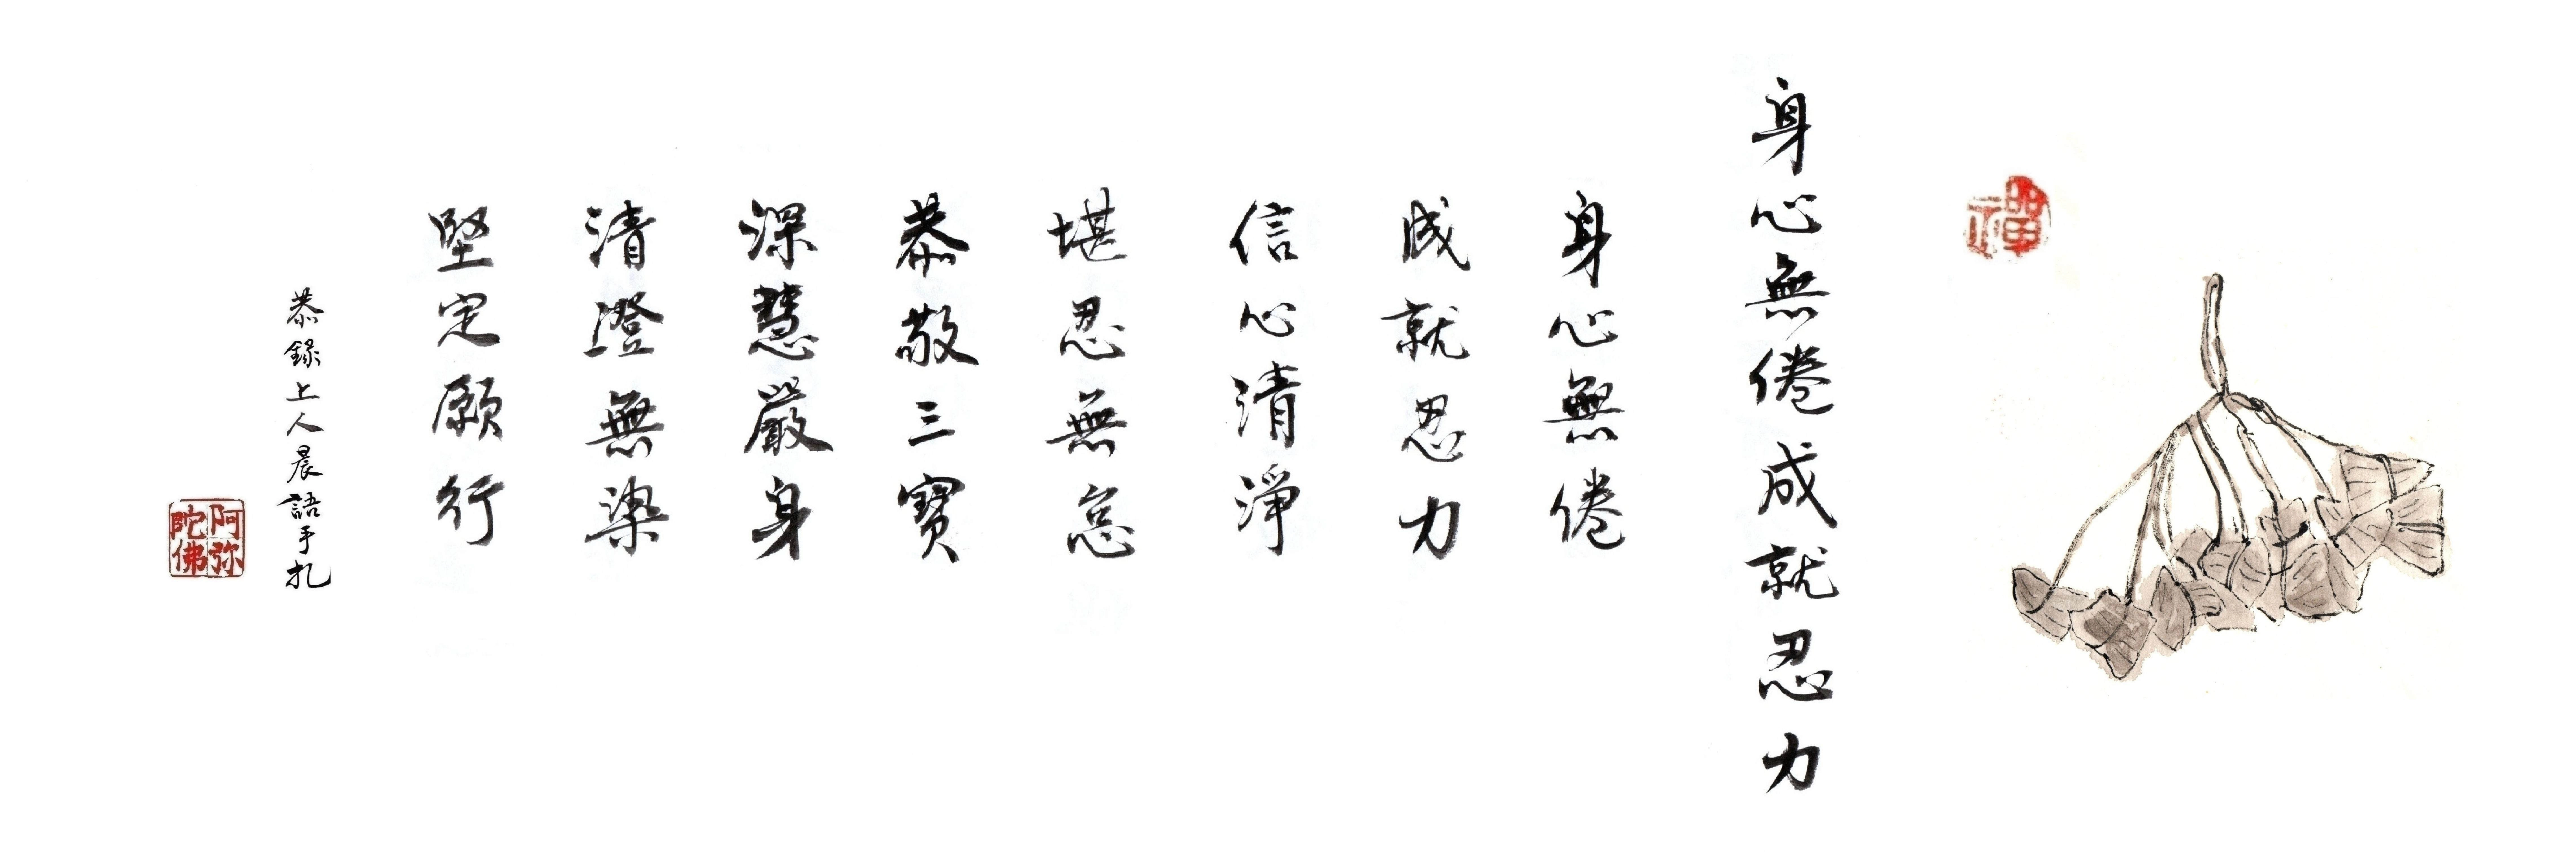 禪
身心無倦成就忍力
身心無倦
成就忍力
信心清淨
堪忍無怠
恭敬三寶
深慧嚴身
清澄無染
堅定願行
恭錄上人晨語手札
阿弥陀佛